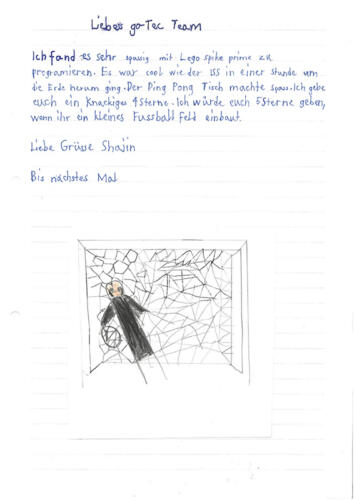 Liebes go Tec Team
Ich fand es sehr spassig mit Lego spike prime zu
programieren. Es war cool wie der ISS in einer stunde um
die Erde herum ging. Der Ping Pong Tisch machte spass. Ich gebe
euch ein Knackiges 4 Sterne. Ich würde euch 5 Sterne geben,
wenn ihr ein kleines Fussball feld einbaut.
Liebe Grüsse Shajin
Bis nächstes Mal